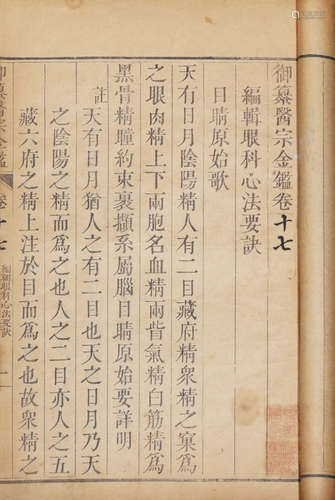 御纂醫宗金鑑卷十七
編輯眼科心法要訣
目睛原始歌
天有日月陰陽精人有二目藏府精衆精之窠爲
之眼肉精上下兩胞名血精兩眥氣精白筋精爲
黑骨精瞳約束裹擷系屬腦目睛原始要詳明
註 天有日月猶人之有二目也天之日月乃天
之陰陽之精而爲之也人之二目亦人之五
藏六府之精上注於目而爲之也故衆精之
御纂醫宗金鑑
卷十七
編輯眼科心法要訣
一